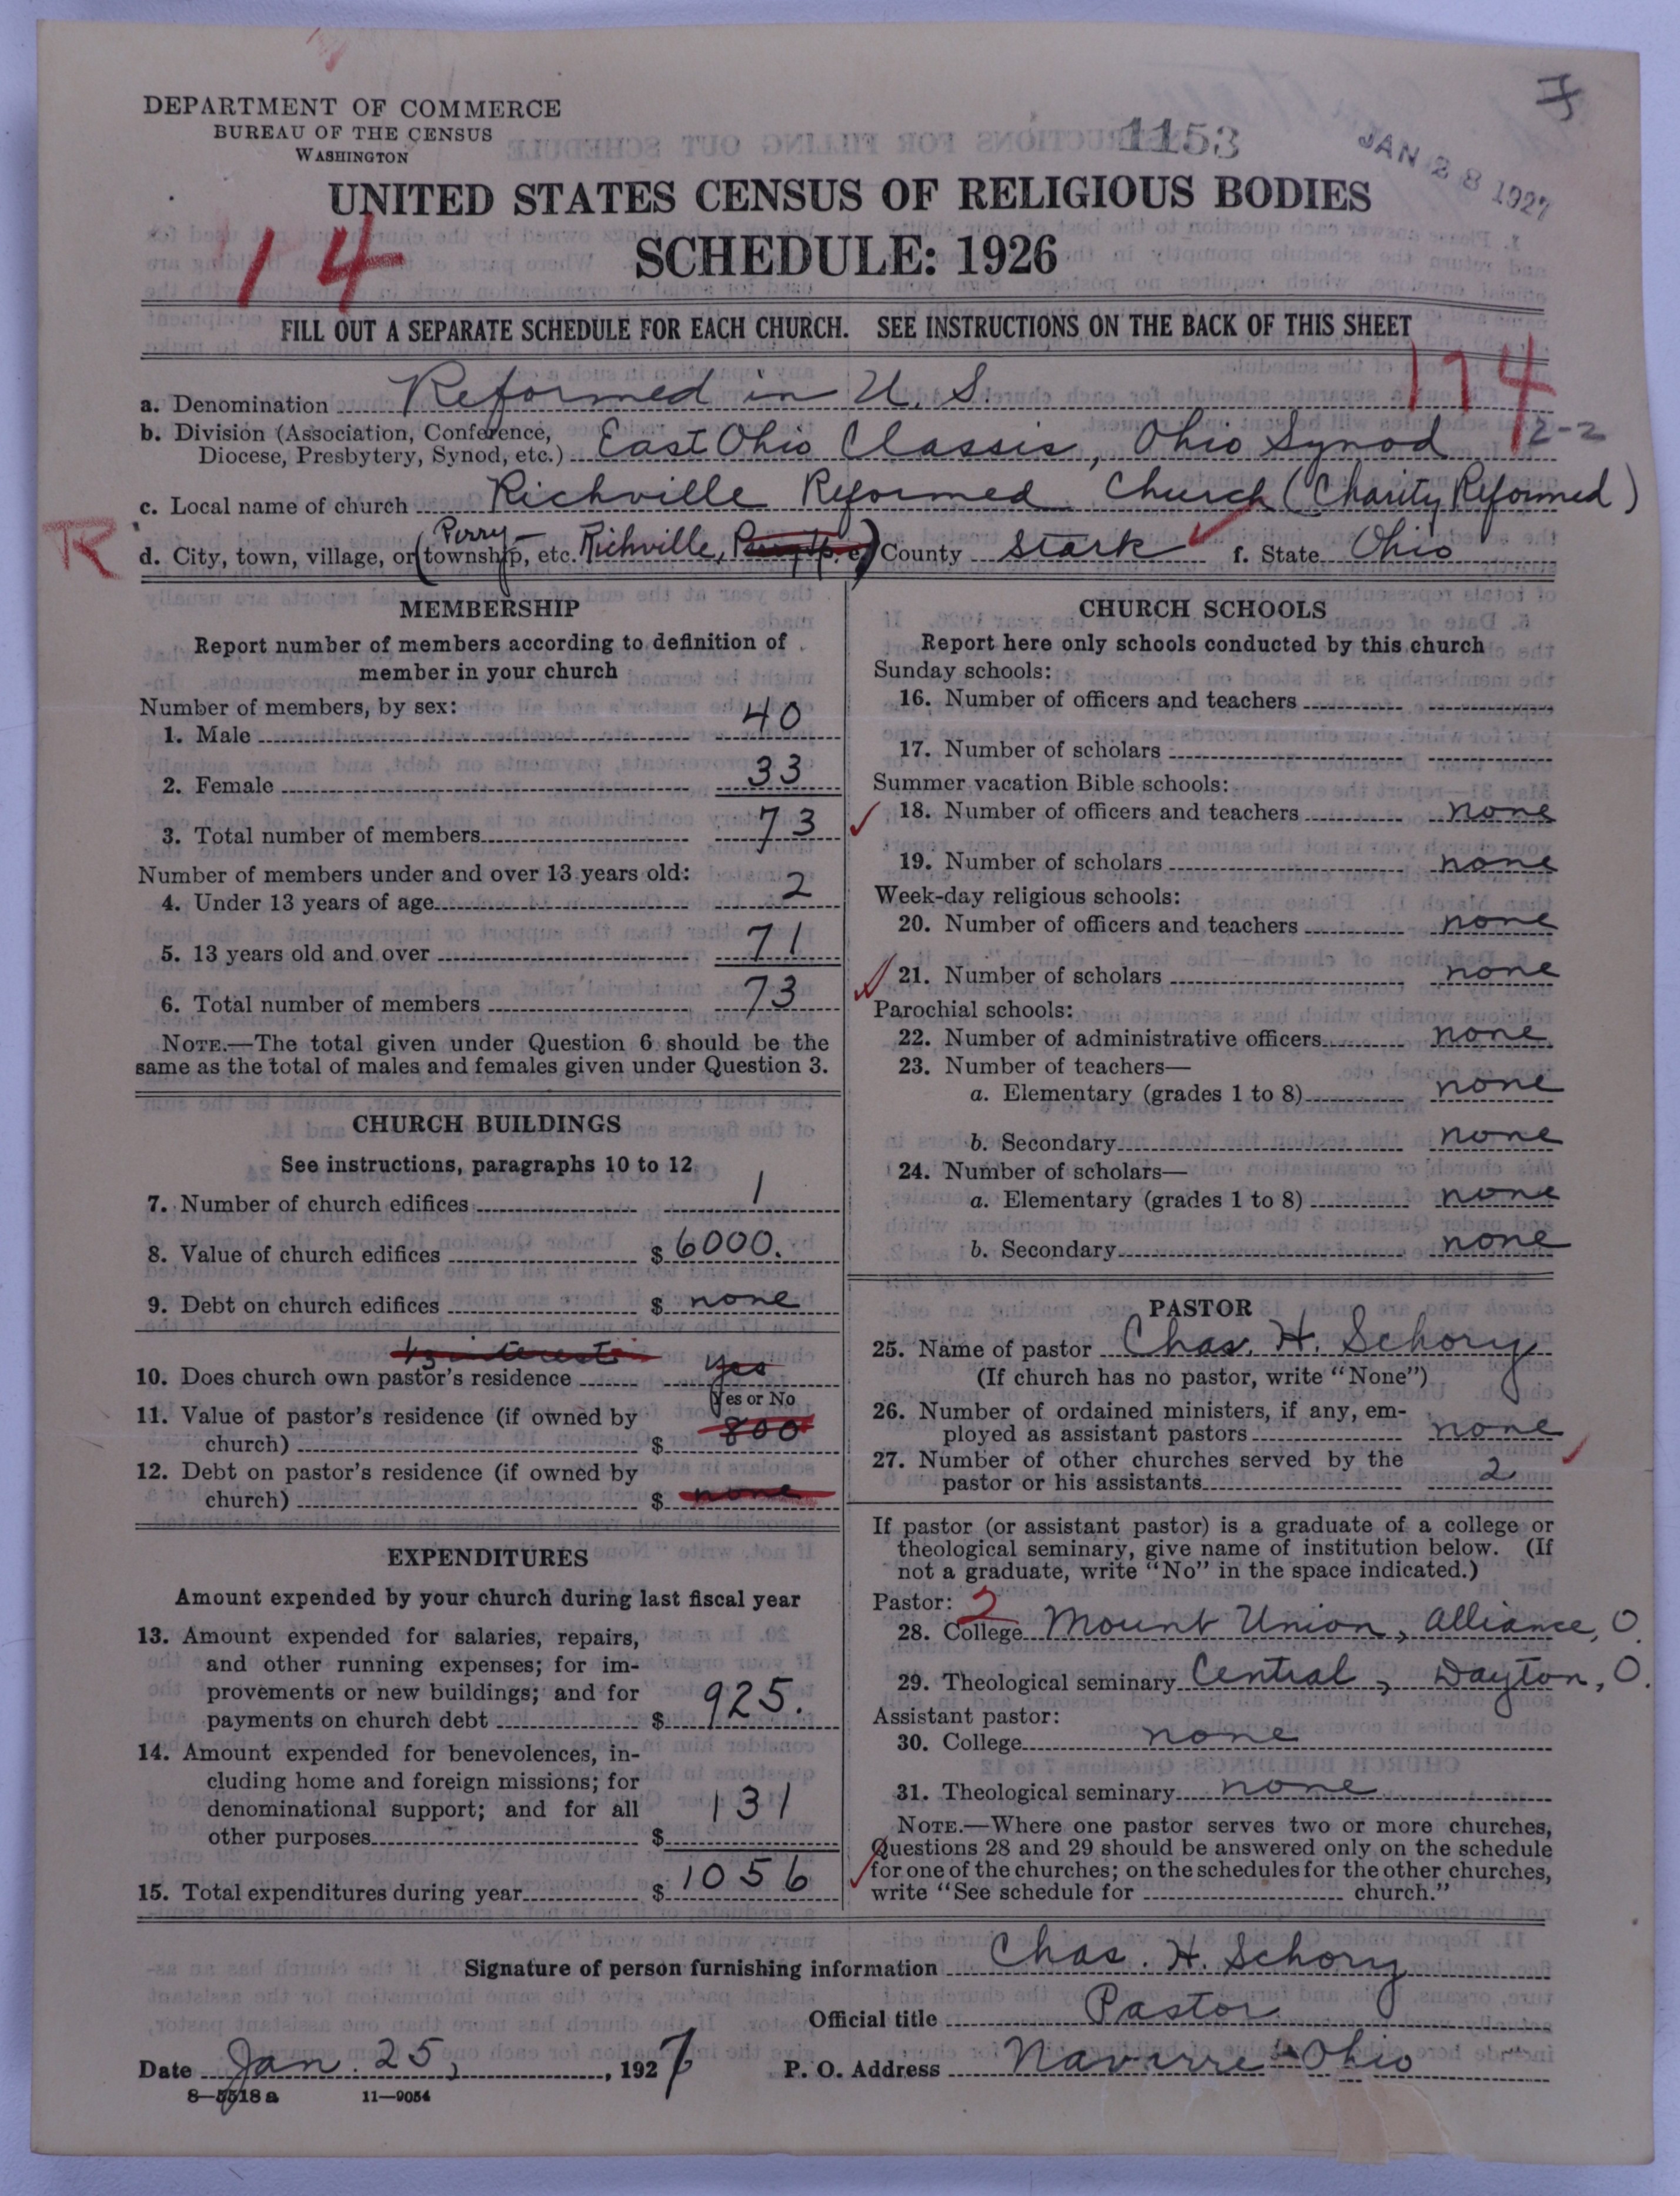 DEPARTMENT OF COMMERCE
BUREAU OF THE CENSUS
WASHINGTON
1153
JAN 28 1927
UNITED STATES CENSUS OF RELIGIOUS BODIES
SCHEDULE: 1926
14
FILL OUT A SEPARATE SCHEDULE FOR EACH CHURCH. SEE INSTRUCTIONS ON THE BACK OF THIS SHEET
114
a. Denomination Reformed in U. S.
b. Division (Association, Conference, Diocese, Presbytery, Synod, etc.) East Ohio Classis, Ohio Synod 12-2
c. Local name of church Richville Reformed Church (Charity Reformed)
R
d. City, town, village, or (township, etc. Perry - Richville, Perry tp. e) County Stark f. State Ohio
MEMBERSHIP
Report number of members according to definition of
member in your church
Number of members, by sex:
1. Male 40
2. Female 33
3. Total number of members 73
Number of members under and over 13 years old:
4. Under 13 years of age 2
5. 13 years old and over 71
6. Total number of members 73
NOTE.—The total given under Question 6 should be the
same as the total of males and females given under Question 3.
CHURCH BUILDINGS
See instructions, paragraphs 10 to 12
7. Number of church edifices 1
8. Value of church edifices $ 6000.
9. Debt on church edifices $ none
1/3 interest
10. Does church own pastor's residence yes
Yes or No
11. Value of pastor's residence (if owned by
church) $ 800
12. Debt on pastor's residence (if owned by
church) $ none
EXPENDITURES
Amount expended by your church during last fiscal year
13. Amount expended for salaries, repairs,
and other running expenses; for im-
provements or new buildings; and for
payments on church debt $ 925.
14. Amount expended for benevolences, in-
cluding home and foreign missions; for
denominational support; and for all
other purposes $ 131
15. Total expenditures during year $ 1056
CHURCH SCHOOLS
Report here only schools conducted by this church
Sunday schools:
16. Number of officers and teachers
17. Number of scholars
Summer vacation Bible schools:
18. Number of officers and teachers none
19. Number of scholars none
Week-day religious schools:
20. Number of officers and teachers none
21. Number of scholars none
Parochial schools:
22. Number of administrative officers none
23. Number of teachers—
a. Elementary (grades 1 to 8) none
b. Secondary none
24. Number of scholars—
a. Elementary (grades 1 to 8) none
b. Secondary none
PASTOR
25. Name of pastor Chas. H. Schory
(If church has no pastor, write "None")
26. Number of ordained ministers, if any, em-
ployed as assistant pastors none
27. Number of other churches served by the
pastor or his assistants 2
If pastor (or assistant pastor) is a graduate of a college or
theological seminary, give name of institution below. (If
not a graduate, write "No" in the space indicated.)
Pastor: 2
28. College Mount Union, Alliance, O.
29. Theological seminary Central, Dayton, O.
Assistant pastor:
30. College none
31. Theological seminary none
NOTE.—Where one pastor serves two or more churches,
Questions 28 and 29 should be answered only on the schedule
for one of the churches; on the schedules for the other churches,
write "See schedule for church."
Signature of person furnishing information Chas. H. Schory
Official title Pastor
Date Jan. 25, 1927 P. O. Address Navarre Ohio
8-5518 a 11-9054